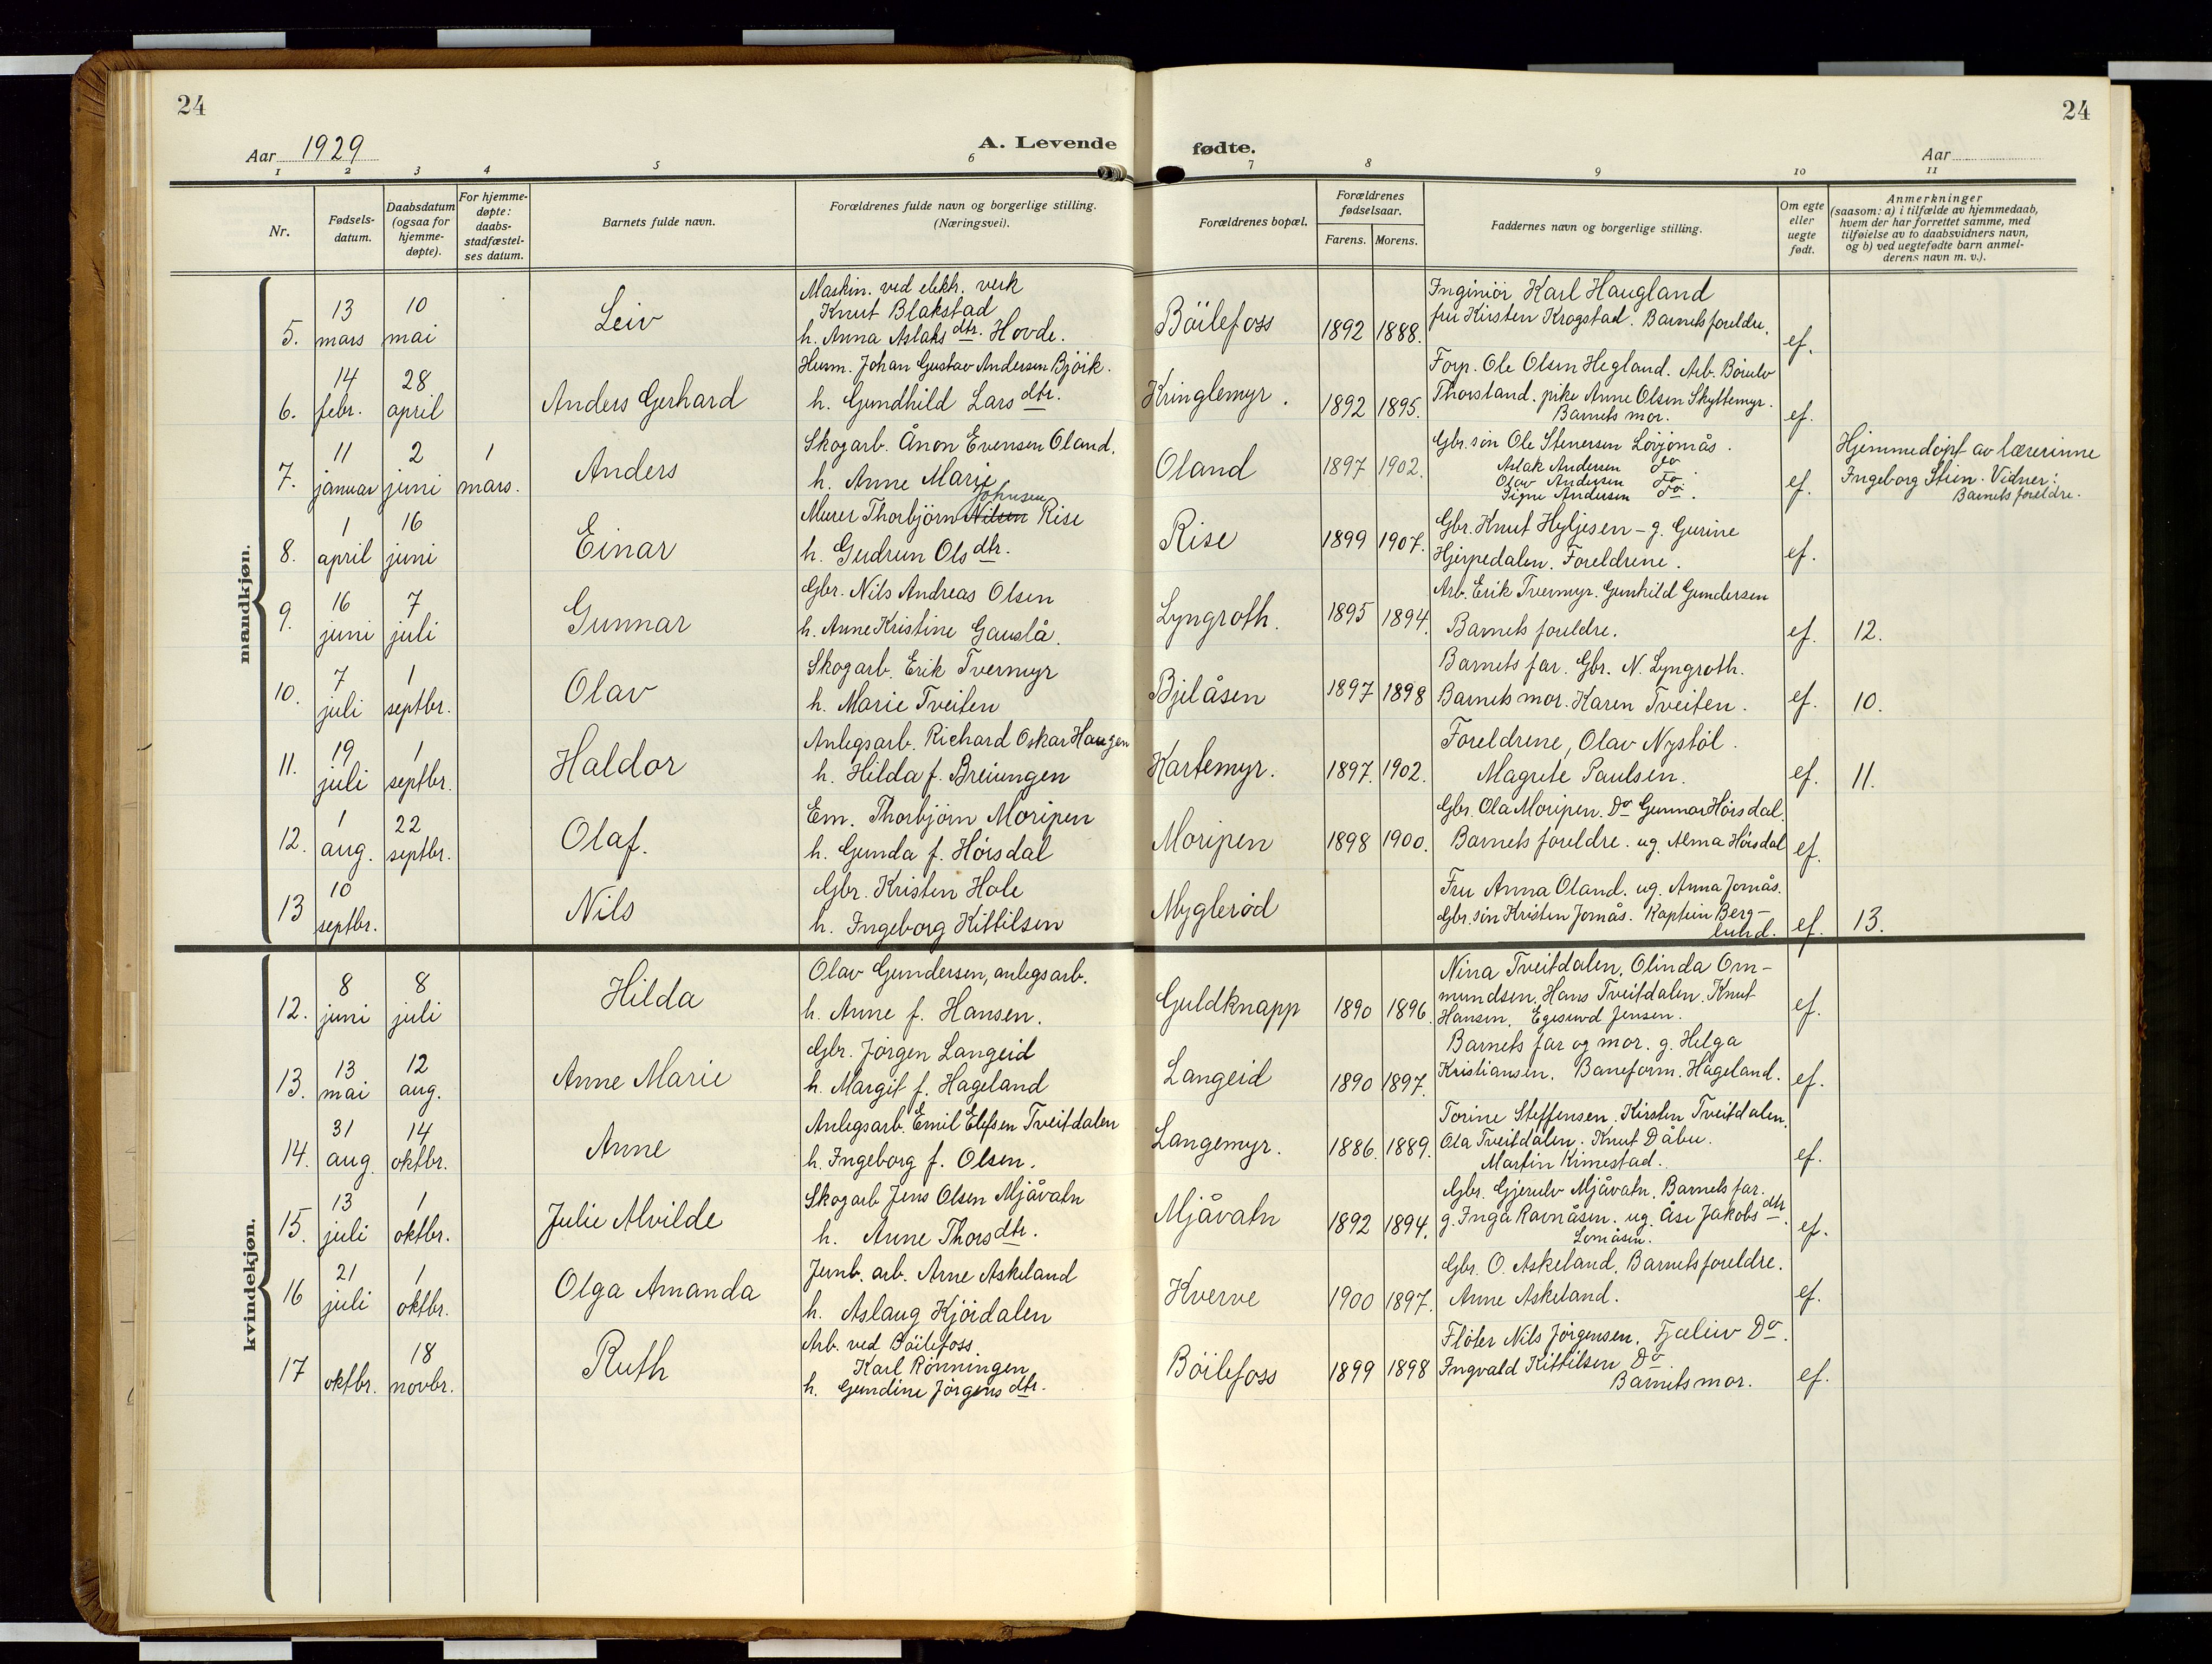 24
24
Aar 1929
A. Levende
fødte.
Aar
1 2 3 4 5 6 7 8 9 10 11
Nr.
Fødsels-
datum.
Daabsdatum
(ogsaa for
hjemme-
døpte).
For hjemme-
døpte:
daabs-
stadfæstel-
ses datum.
Barnets fulde navn.
Forældrenes fulde navn og borgerlige stilling.
(Næringsvei).
Forældrenes bopæl.
Forældrenes
fødselsaar.
Farens. Morens.
Faddernes navn og borgerlige stilling.
Om egte
eller
uegte
født.
Anmerkninger
(saasom: a) i tilfælde av hjemmedaab,
hvem der har forrettet samme, med
tilføielse av to daabsvidners navn,
og b) ved uegtefødte barn anmel-
derens navn m. v.).
mandkjøn.
5. 13 mars 10 mai Leiv
Maskin. ved elektr. verk
Knut Blakstad
h. Anna Aslaksdtr. Hovde.
Böilefoss 1892 1888.
Inginiör Karl Haugland
fru Kirsten Krogstad. Barnets foreldre.
ef.
6. 14 febr. 28 april Anders Gerhard
Husm. Johan Gustav Andersen Bjöik.
h. Gundhild Larsdtr.
Kringlemyr. 1892 1895.
Forp. Ole Olsen Hegland. Arb. Börulv
Thorsland. pike Anne Olsen Skyttemyr.
Barnets mor.
ef.
7. 11 januar 2 juni 1 mars. Anders
Skogarb. Ånon Evensen Oland.
h. Anne Marie
Oland 1897 1902.
Gbr. sön Ole Stenersen Lövjomås.
Aslak Andersen do
Olav Andersen do
Signe Andersen do.
ef.
Hjemmedöpt av lærerinne
Ingeborg Stien. Vidner:
Barnets foreldre.
8. 1 april 16 juni Einar
Johnsen
Murer Thorbjörn Nilsen Rise
h. Gudrun Olsdtr.
Rise 1899 1907.
Gbr. Knut Hyljesen – g. Gurine
Hjerpedalen. Foreldrene.
ef.
9. 16 juni 7 juli Gunnar
Gbr. Nils Andreas Olsen
h. Anne Kristine Gauslå.
Lyngroth. 1895 1894.
Arb. Erik Tvermyr. Gunhild Gundersen
Barnets foreldre.
ef. 12.
10. 7 juli 1 septbr. Olav
Skogarb. Erik Tvermyr
h. Marie Tveiten
Bjelåsen 1897 1898
Barnets far. Gbr. N. Lyngroth.
Barnets mor. Karen Tveiten.
ef. 10.
11. 19 juli 1 septbr. Haldor
Anlegsarb. Richard Oskar Haugen
h. Hilda f. Breiungen
Kartemyr. 1897. 1902.
Foreldrene, Olav Nystöl.
Magrete Paulsen.
ef. 11.
12. 1 aug. 22 septbr. Olaf.
Em. Thorbjörn Moripen
h. Gunda f. Hörsdal
Moripen 1898 1900.
Gbr. Ola Moripen. Do Gunnar Hörsdal.
Barnets foreldre. ug. Alma Hörsdal
ef.
13 10 septbr. Nils
Gbr. Kristen Hole
h. Ingeborg Kittilsen
Myglerød
Fru Anna Oland. ug. Anna Jomås.
Gbr. sön Kristen Jomås. Kaptein Berg-
lund.
ef. 13.
kvindekjøn.
12. 8 juni 8 juli Hilda
Olav Gundersen, anlegsarb.
h. Anne f. Hansen.
Guldknapp 1890 1896.
Nina Tveitdalen, Olinda Om-
mundsen. Hans Tveitdalen. Knut
Hansen. Jensen.
ef.
13. 13 mai 12 aug. Anne Marie
Gbr. Jörgen Langeid
h. Margit f. Hageland
Langeid 1890 1897.
Barnets far og mor. g. Helga
Kristiansen. Baneform. Hageland.
ef.
14. 31 aug. 14 oktbr. Anne
Anlegsarb. Emil Elefsen Tveitdalen
h. Ingeborg f. Olsen.
Langemyr. 1886. 1889.
Torine Steffensen. Kirsten Tveitdalen.
Ola Tveitdalen. Knut Dåbu.
Martin Kimestad.
ef.
15. 13 juli 1 oktbr. Julie Alvilde
Skogarb Jens Olsen Mjåvatn
h. Anne Thorsdtr.
Mjåvatn 1892 1894.
Gbr. Gjerulv Mjåvatn. Barnets far.
g. Inga Ravnåsen. ug. Åse Jakobsdtr.
Lomåsen.
ef.
16 21 juli 1 oktbr. Olga Amanda
Jernb. arb. Arne Askeland
h. Aslaug Kjöidalen
Kverve 1900 1897.
Gbr. O. Askeland. Barnets foreldre.
Anne Askeland.
ef.
17 oktbr. 18 novbr. Ruth
Arb. ved Böilefoss
Karl Rönningen
h. Gundine Jörgensdtr.
Böilefoss 1899 1898
Flöter Nils Jörgensen. Do.
Ingvald Kittilsen Do.
Barnets mor.
ef.